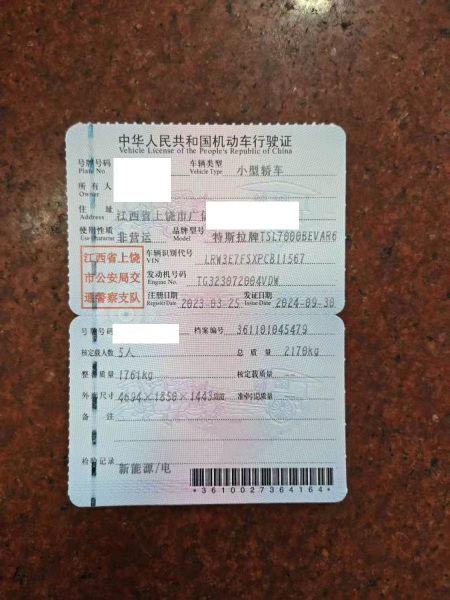 中华人民共和国机动车行驶证
Vehicle License of the People's Republic of China
号牌号码 Plate No 车辆类型 Vehicle Type 小型轿车
所有人 Owner
住址 Address 江西省上饶市广信
使用性质 Use Character 非营运 品牌型号 Model 特斯拉牌TSL7000BEVAR6
江西省上饶市公安局交通警察支队
车辆识别代号 VIN LRW3E7FSXPC811567
发动机号码 Engine No. TG323072004VDW
注册日期 Register Date 2023-03-25 发证日期 Issue Date 2024-09-30
号牌号码 档案编号 361101045479
核定载人数 5人 总质量 2170kg
整备质量 1761kg 核定载质量
外廓尺寸 4694×1850×1443mm 准牵引总质量
备注
检验记录 新能源/电
*3610027364164*